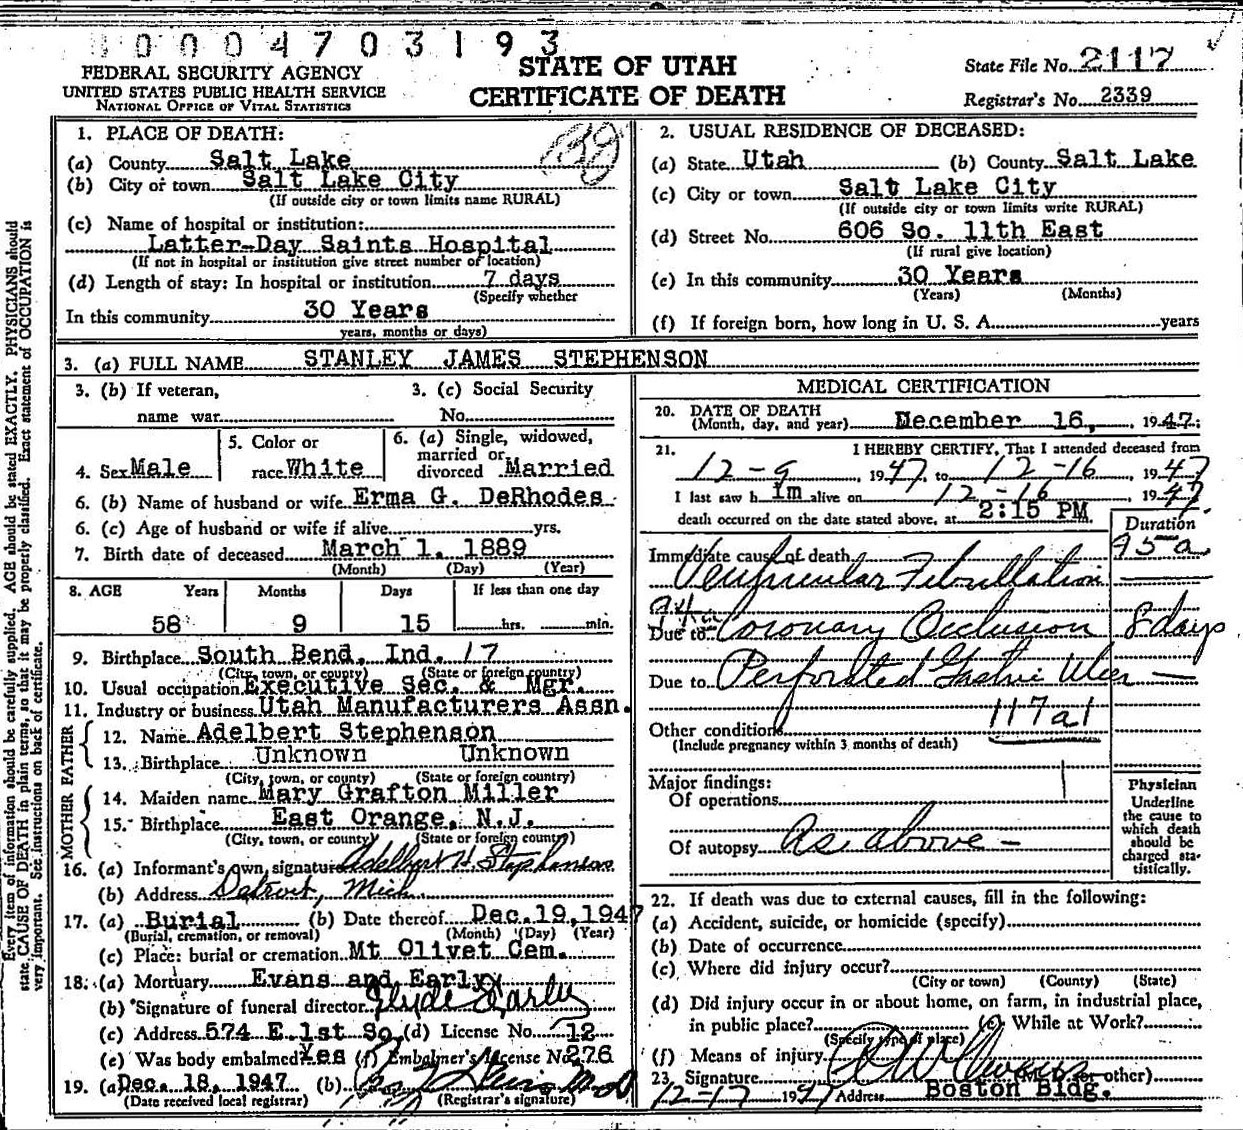 0004703193
FEDERAL SECURITY AGENCY
UNITED STATES PUBLIC HEALTH SERVICE
NATIONAL OFFICE OF VITAL STATISTICS
STATE OF UTAH
CERTIFICATE OF DEATH
State File No. 2117
Registrar's No. 2339
Every item of information should be carefully supplied. AGE should be stated EXACTLY. PHYSICIANS should
state CAUSE OF DEATH in plain terms, so that it may be properly classified. Exact statement of OCCUPATION is
very important. See instructions on back of certificate.
1. PLACE OF DEATH:
(a) County Salt Lake
(b) City or town Salt Lake City
(If outside city or town limits name RURAL)
(c) Name of hospital or institution:
Latter-Day Saints Hospital
(If not in hospital or institution give street number of location)
(d) Length of stay: In hospital or institution 7 days
(Specify whether
In this community 30 Years
years, months or days)
2. USUAL RESIDENCE OF DECEASED:
(a) State Utah (b) County Salt Lake
(c) City or town Salt Lake City
(If outside city or town limits write RURAL)
(d) Street No. 606 So. 11th East
(If rural give location)
(e) In this community 30 Years
(Years) (Months)
(f) If foreign born, how long in U. S. A. years
3. (a) FULL NAME STANLEY JAMES STEPHENSON
3. (b) If veteran,
name war
3. (c) Social Security
No.
4. Sex Male
5. Color or
race White
6. (a) Single, widowed,
married or
divorced Married
6. (b) Name of husband or wife Erma G. DeRhodes
6. (c) Age of husband or wife if alive yrs.
7. Birth date of deceased March 1, 1889
(Month) (Day) (Year)
8. AGE Years Months Days If less than one day
58 9 15 hrs. min.
9. Birthplace South Bend, Ind. 17
(City, town, or county) (State or foreign country)
10. Usual occupation Executive Sec. & Mgr.
11. Industry or business Utah Manufacturers Assn.
FATHER
12. Name Adelbert Stephenson
13. Birthplace Unknown Unknown
(City, town, or county) (State or foreign country)
MOTHER
14. Maiden name Mary Grafton Miller
15. Birthplace East Orange, N.J.
(City, town, or county) (State or foreign country)
16. (a) Informant's own signature Adelbert H Stephenson
(b) Address Detroit, Mich
17. (a) Burial (b) Date thereof Dec. 19, 1947
(Burial, cremation, or removal) (Month) (Day) (Year)
(c) Place: burial or cremation Mt Olivet Cem.
18. (a) Mortuary Evans and Early
(b) Signature of funeral director Clyde Early
(c) Address 574 E. 1st So. (d) License No. 12
(e) Was body embalmed Yes (f) Embalmer's License No. 276
19. (a) Dec. 18, 1947 (b)
(Date received local registrar) (Registrar's signature)
MEDICAL CERTIFICATION
20. DATE OF DEATH
(Month, day, and year) December 16, 1947
21. I HEREBY CERTIFY, That I attended deceased from
12-9 1947, to 12-16, 1947
I last saw h im alive on 12-16, 1947
death occurred on the date stated above, at 2:15 PM.
Duration
Immediate cause of death 95a
Ventricular Fibrillation
94a
Due to Coronary Occlusion 8 days
Due to Perforated Gastric Ulcer —
117a1
Other conditions
(Include pregnancy within 3 months of death)
Major findings:
Of operations
Of autopsy As above -
Physician
Underline
the cause to
which death
should be
charged sta-
tistically.
22. If death was due to external causes, fill in the following:
(a) Accident, suicide, or homicide (specify)
(b) Date of occurrence
(c) Where did injury occur?
(City or town) (County) (State)
(d) Did injury occur in or about home, on farm, in industrial place,
in public place? (e) While at Work?
(Specify type of place)
(f) Means of injury
23. Signature (M.D. or other)
12-17 1947 Address Boston Bldg.